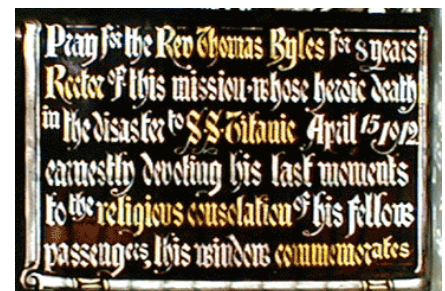 Pray for the Rev Thomas Byles for 8 years
Rector of this mission · whose heroic death
in the disaster to S.S. Titanic April 15 1912
earnestly devoting his last moments
to the religious consolation of his fellow
passengers, this window commemorates